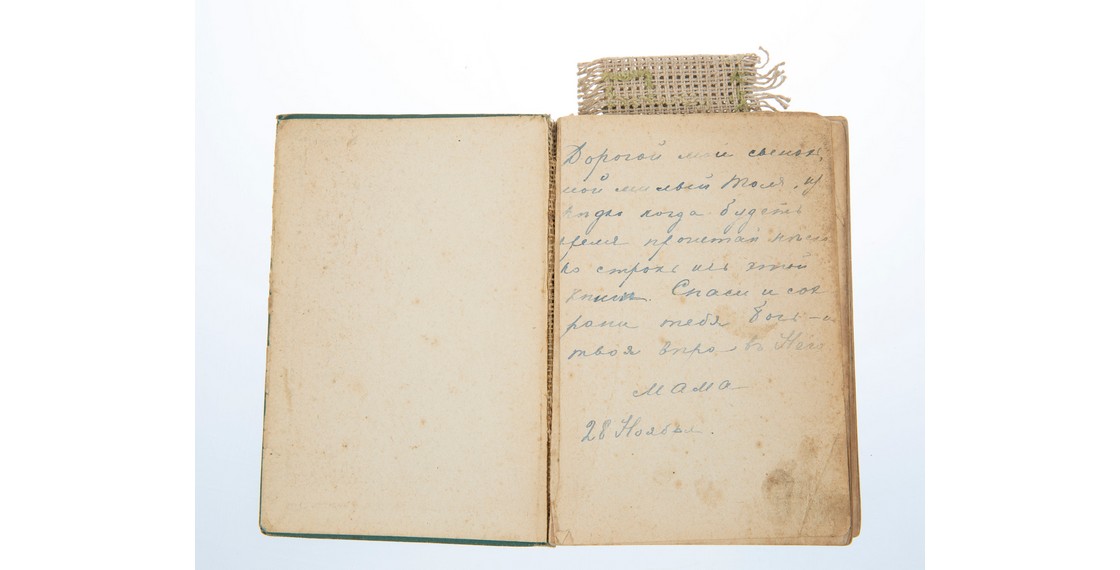 Дорогой мой сынок,
мой милый Толя,
когда будетъ
время прочитай
строкъ изъ этой
книги. Спаси и сох
рани тебя Богъ – и
твоя вѣра въ Него
мама
28 Ноября.